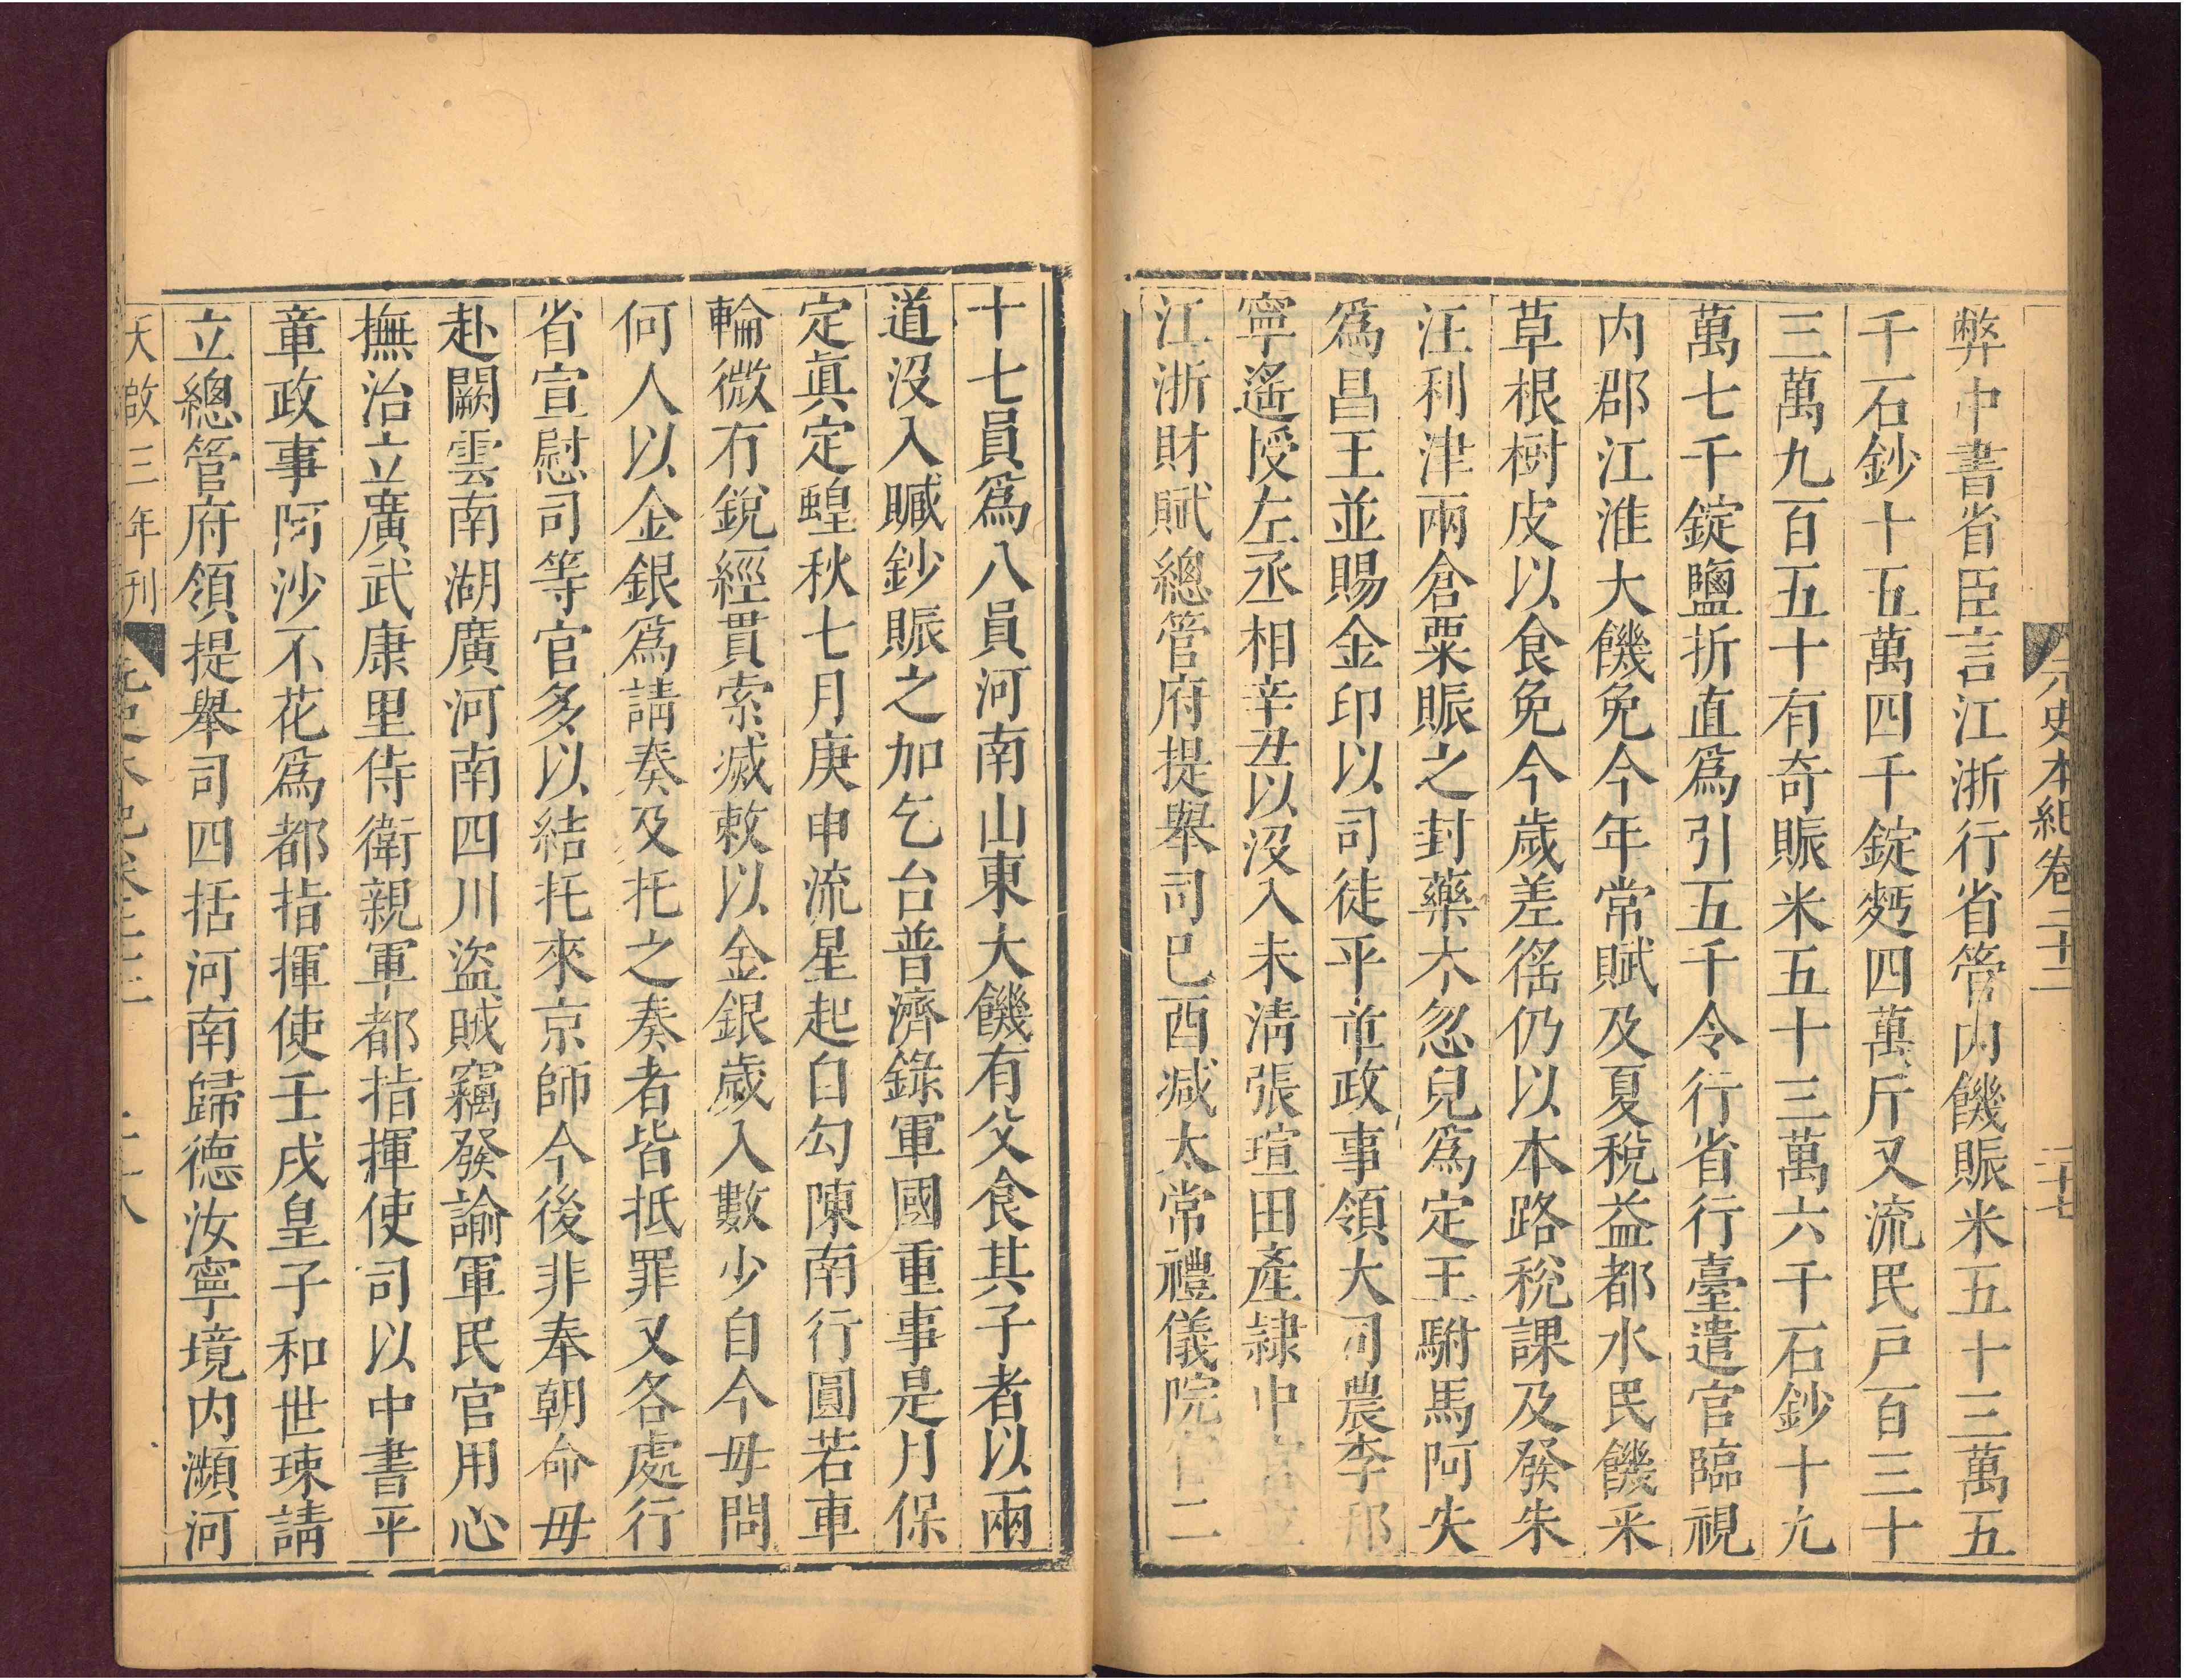 元史本紀卷二十二
二十七
弊中書省臣言江浙行省管內饑賑米五十三萬五
千石鈔十五萬四千錠麪四萬斤又流民戶百三十
三萬九百五十有奇賑米五十三萬六千石鈔十九
萬七千錠鹽折直爲引五千令行省行臺遣官臨視
內郡江淮大饑免今年常賦及夏稅益都水民饑采
草根樹皮以食免今歲差徭仍以本路稅課及發朱
汪利津兩倉粟賑之封藥木忽兒爲定王駙馬阿失
爲昌王並賜金印以司徒平章政事領大司農李邦
寧遙授左丞相辛丑以沒入未淸張瑄田產隷中
江浙財賦總管府提舉司巳酉减太常禮儀院二
十七員爲八員河南山東大饑有父食其子者以兩
道沒入贓鈔賑之加乞台普濟錄軍國重事是月保
定眞定蝗秋七月庚申流星起自勾陳南行圓若車
輪微有銳經貫索滅敕以金銀歲入數少自今毋問
何人以金銀爲請奏及托之奏者皆抵罪又各處行
省宣慰司等官多以結托來京師今後非奉朝命毋
赴闕雲南湖廣河南四川盜賊竊發諭軍民官用心
撫治立廣武康里侍衛親軍都指揮使司以中書平
章政事阿沙不花爲都指揮使壬戌皇子和世㻋請
立總管府領提舉司四括河南歸德汝寧境內瀕河
天啟三年刊
元史本紀卷二十二
二十八